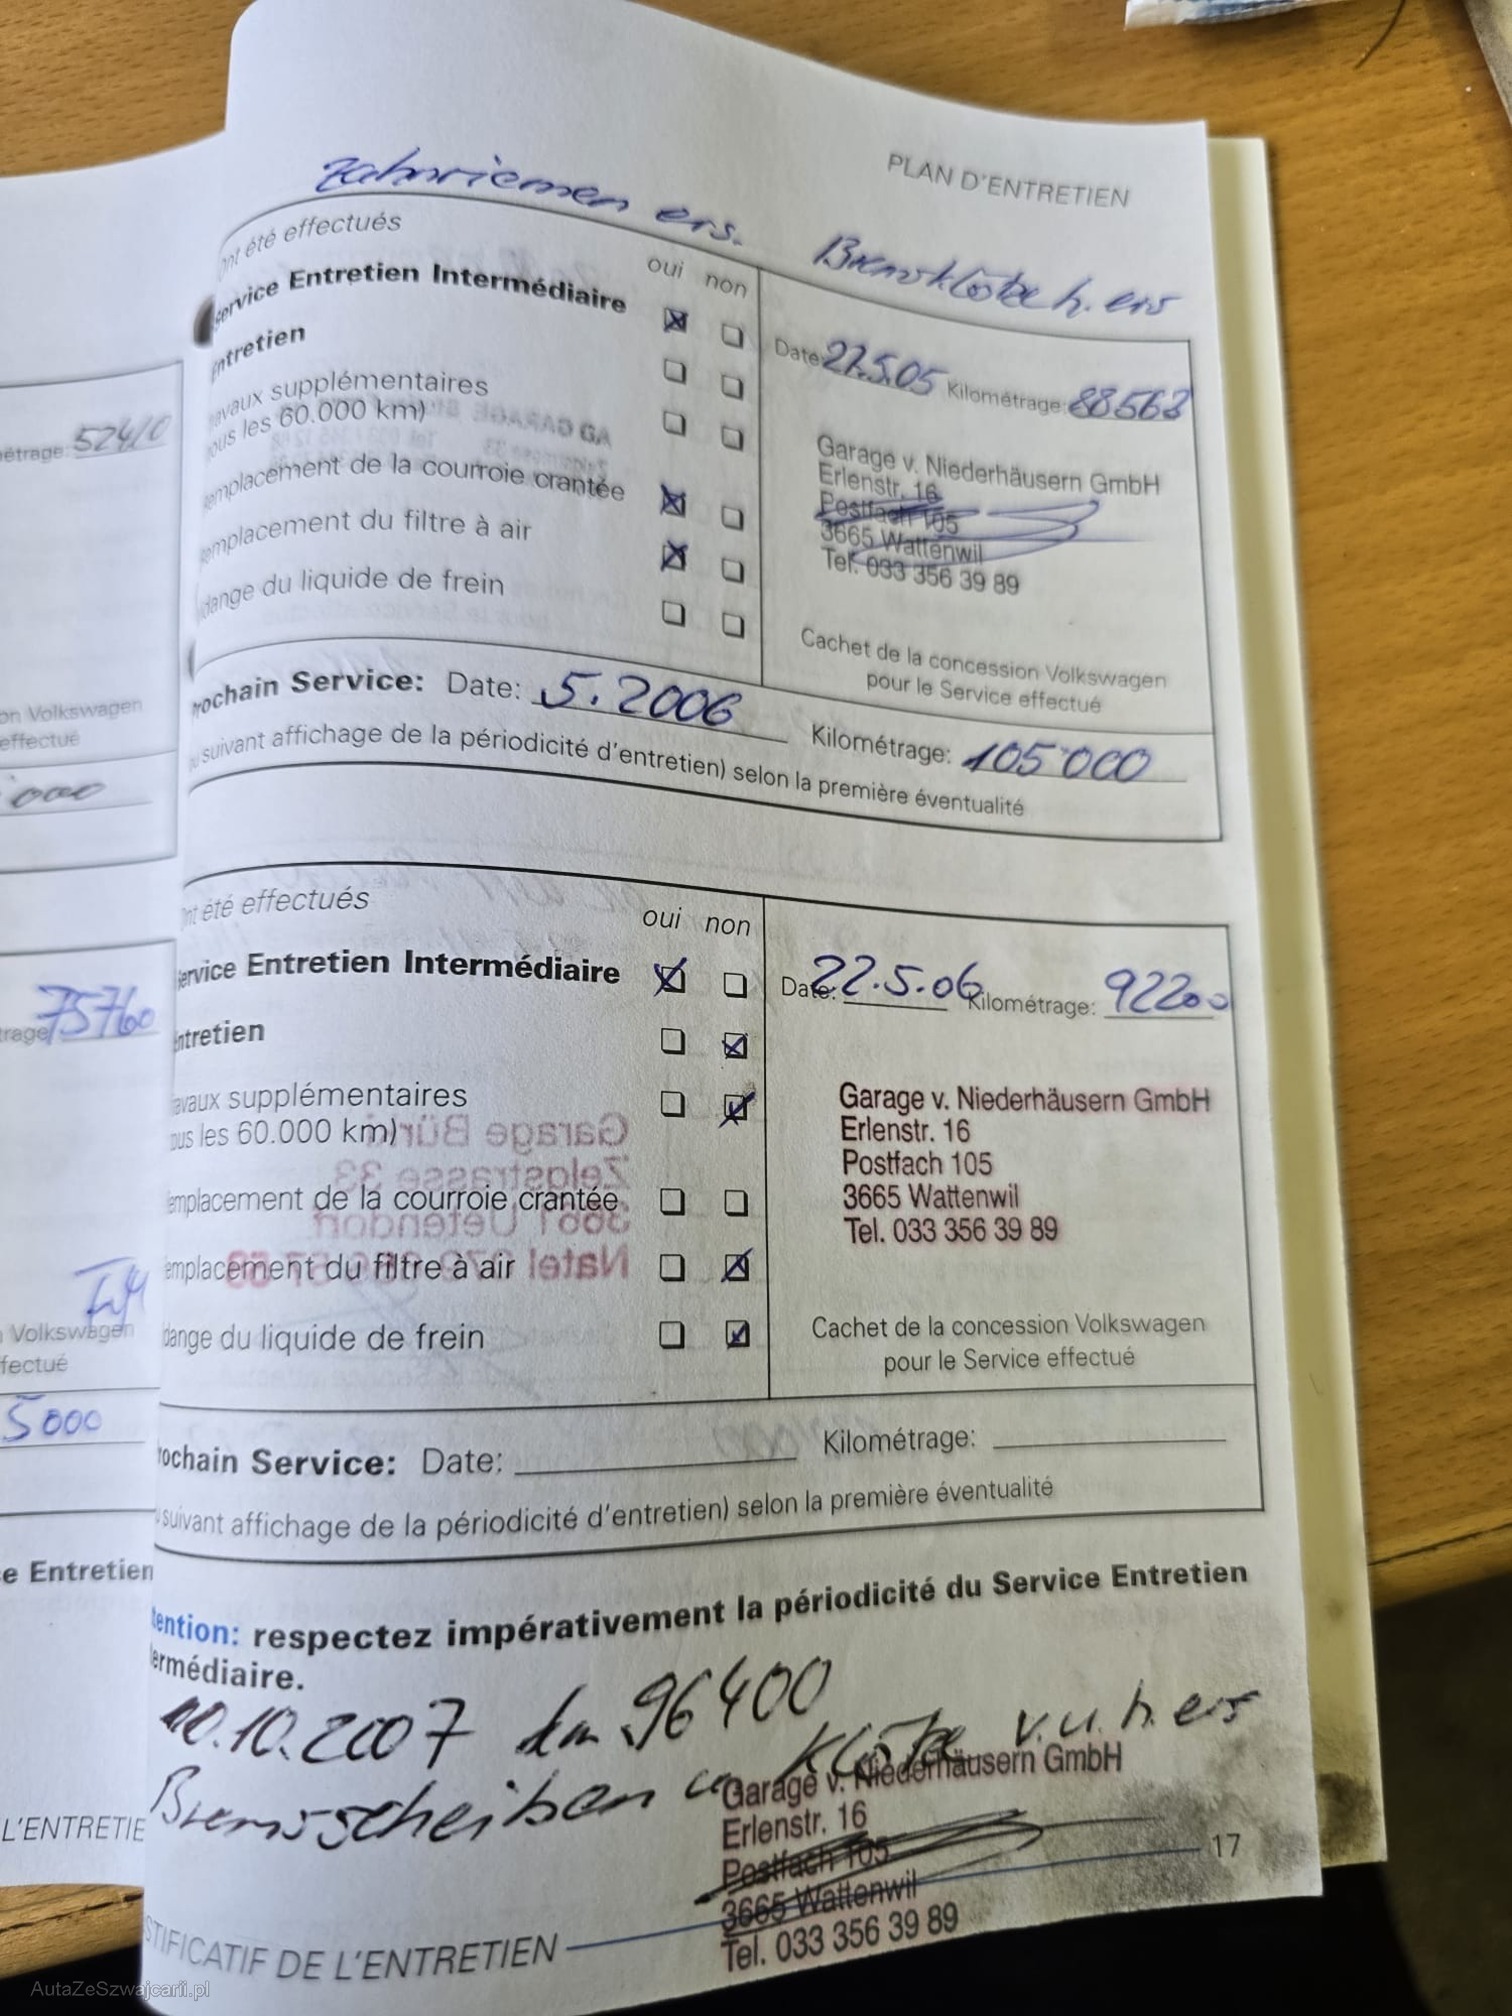 PLAN D'ENTRETIEN
Zahnriemen ers. Bremsklötze h. ers
ont été effectués
oui non
Service Entretien Intermédiaire
Entretien
Travaux supplémentaires
tous les 60.000 km)
remplacement de la courroie crantée
remplacement du filtre à air
vidange du liquide de frein
Date: 27.5.05 Kilométrage: 88568
Garage v. Niederhäusern GmbH
Erlenstr. 16
Postfach 105
3665 Wattenwil
Tel. 033 356 39 89
Cachet de la concession Volkswagen
pour le Service effectué
Prochain Service: Date: 5.2006 Kilométrage: 105'000
suivant affichage de la périodicité d'entretien) selon la première éventualité
ont été effectués
oui non
Service Entretien Intermédiaire
Entretien
Travaux supplémentaires
tous les 60.000 km)
remplacement de la courroie crantée
remplacement du filtre à air
vidange du liquide de frein
Date: 22.5.06 Kilométrage: 92200
Garage v. Niederhäusern GmbH
Erlenstr. 16
Postfach 105
3665 Wattenwil
Tel. 033 356 39 89
Cachet de la concession Volkswagen
pour le Service effectué
Prochain Service: Date: Kilométrage:
suivant affichage de la périodicité d'entretien) selon la première éventualité
tention: respectez impérativement la périodicité du Service Entretien
ermédiaire.
10.10.2007 km 96400
Bremsscheiben u Klötze v.u.h. ers
Garage v. Niederhäusern GmbH
Erlenstr. 16
Postfach 105
3665 Wattenwil
Tel. 033 356 39 89
17
STIFICATIF DE L'ENTRETIEN
étrage: 52410
on Volkswagen
effectué
000
trage 75760
n Volkswagen
fectué
5000
e Entretien
L'ENTRETIE
AutaZeSzwajcarii.pl